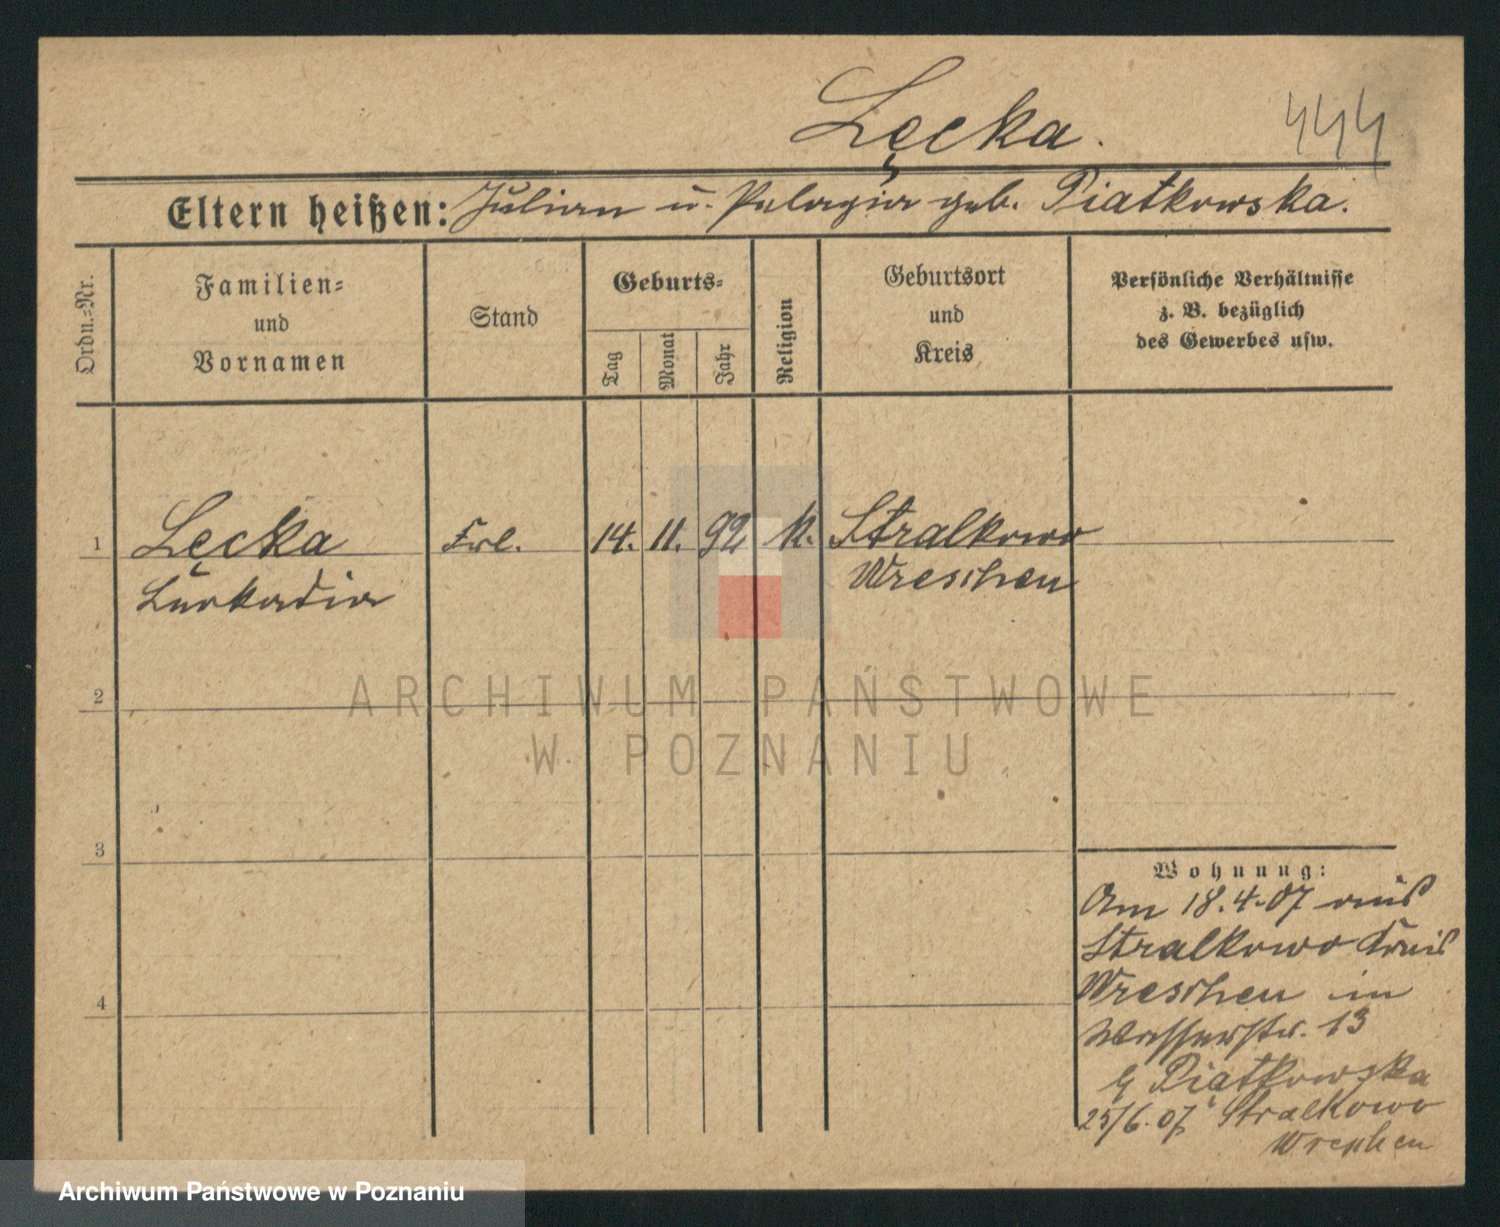 Lęcka.
444
Eltern heißen: Julian u. Pelagia geb. Piatkowska.
Ordn.=Nr.
Familien=
und
Vornamen
Stand
Geburts=
Tag
Monat
Jahr
Religion
Geburtsort
und
Kreis
Persönliche Verhältnisse
z. B. bezüglich
des Gewerbes usw.
1 Lęcka Frl. 14. 11. 92 k. Stralkowo
Leokadia Wreschen
2
3
4
Wohnung:
Am 18.4.07 aus
Stralkowo Kreis
Wreschen in
Wasserstr. 13
b Piątkowska
25/6.07 Stralkowo
Wreschen
ARCHIWUM PAŃSTWOWE
W POZNANIU
Archiwum Państwowe w Poznaniu